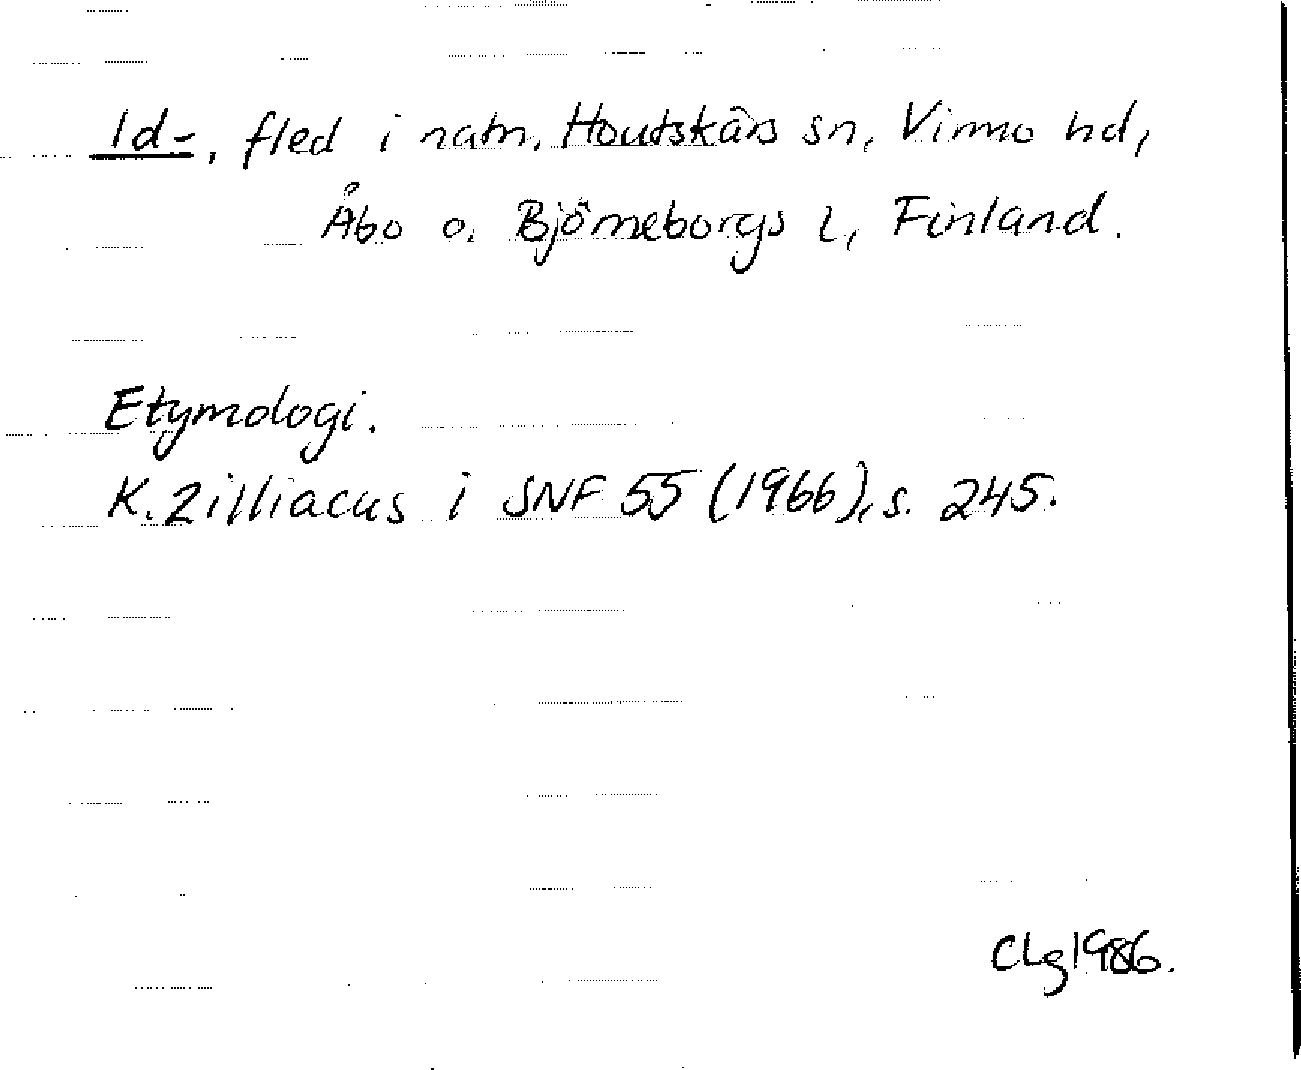 Id-, fled i natn, Houtskärs sn, Virmo hd,
Åbo o. Björneborgs l, Finland.
Etymologi.
K. Zilliacus i SNF 55 (1966), s. 245.
CLg 1986.